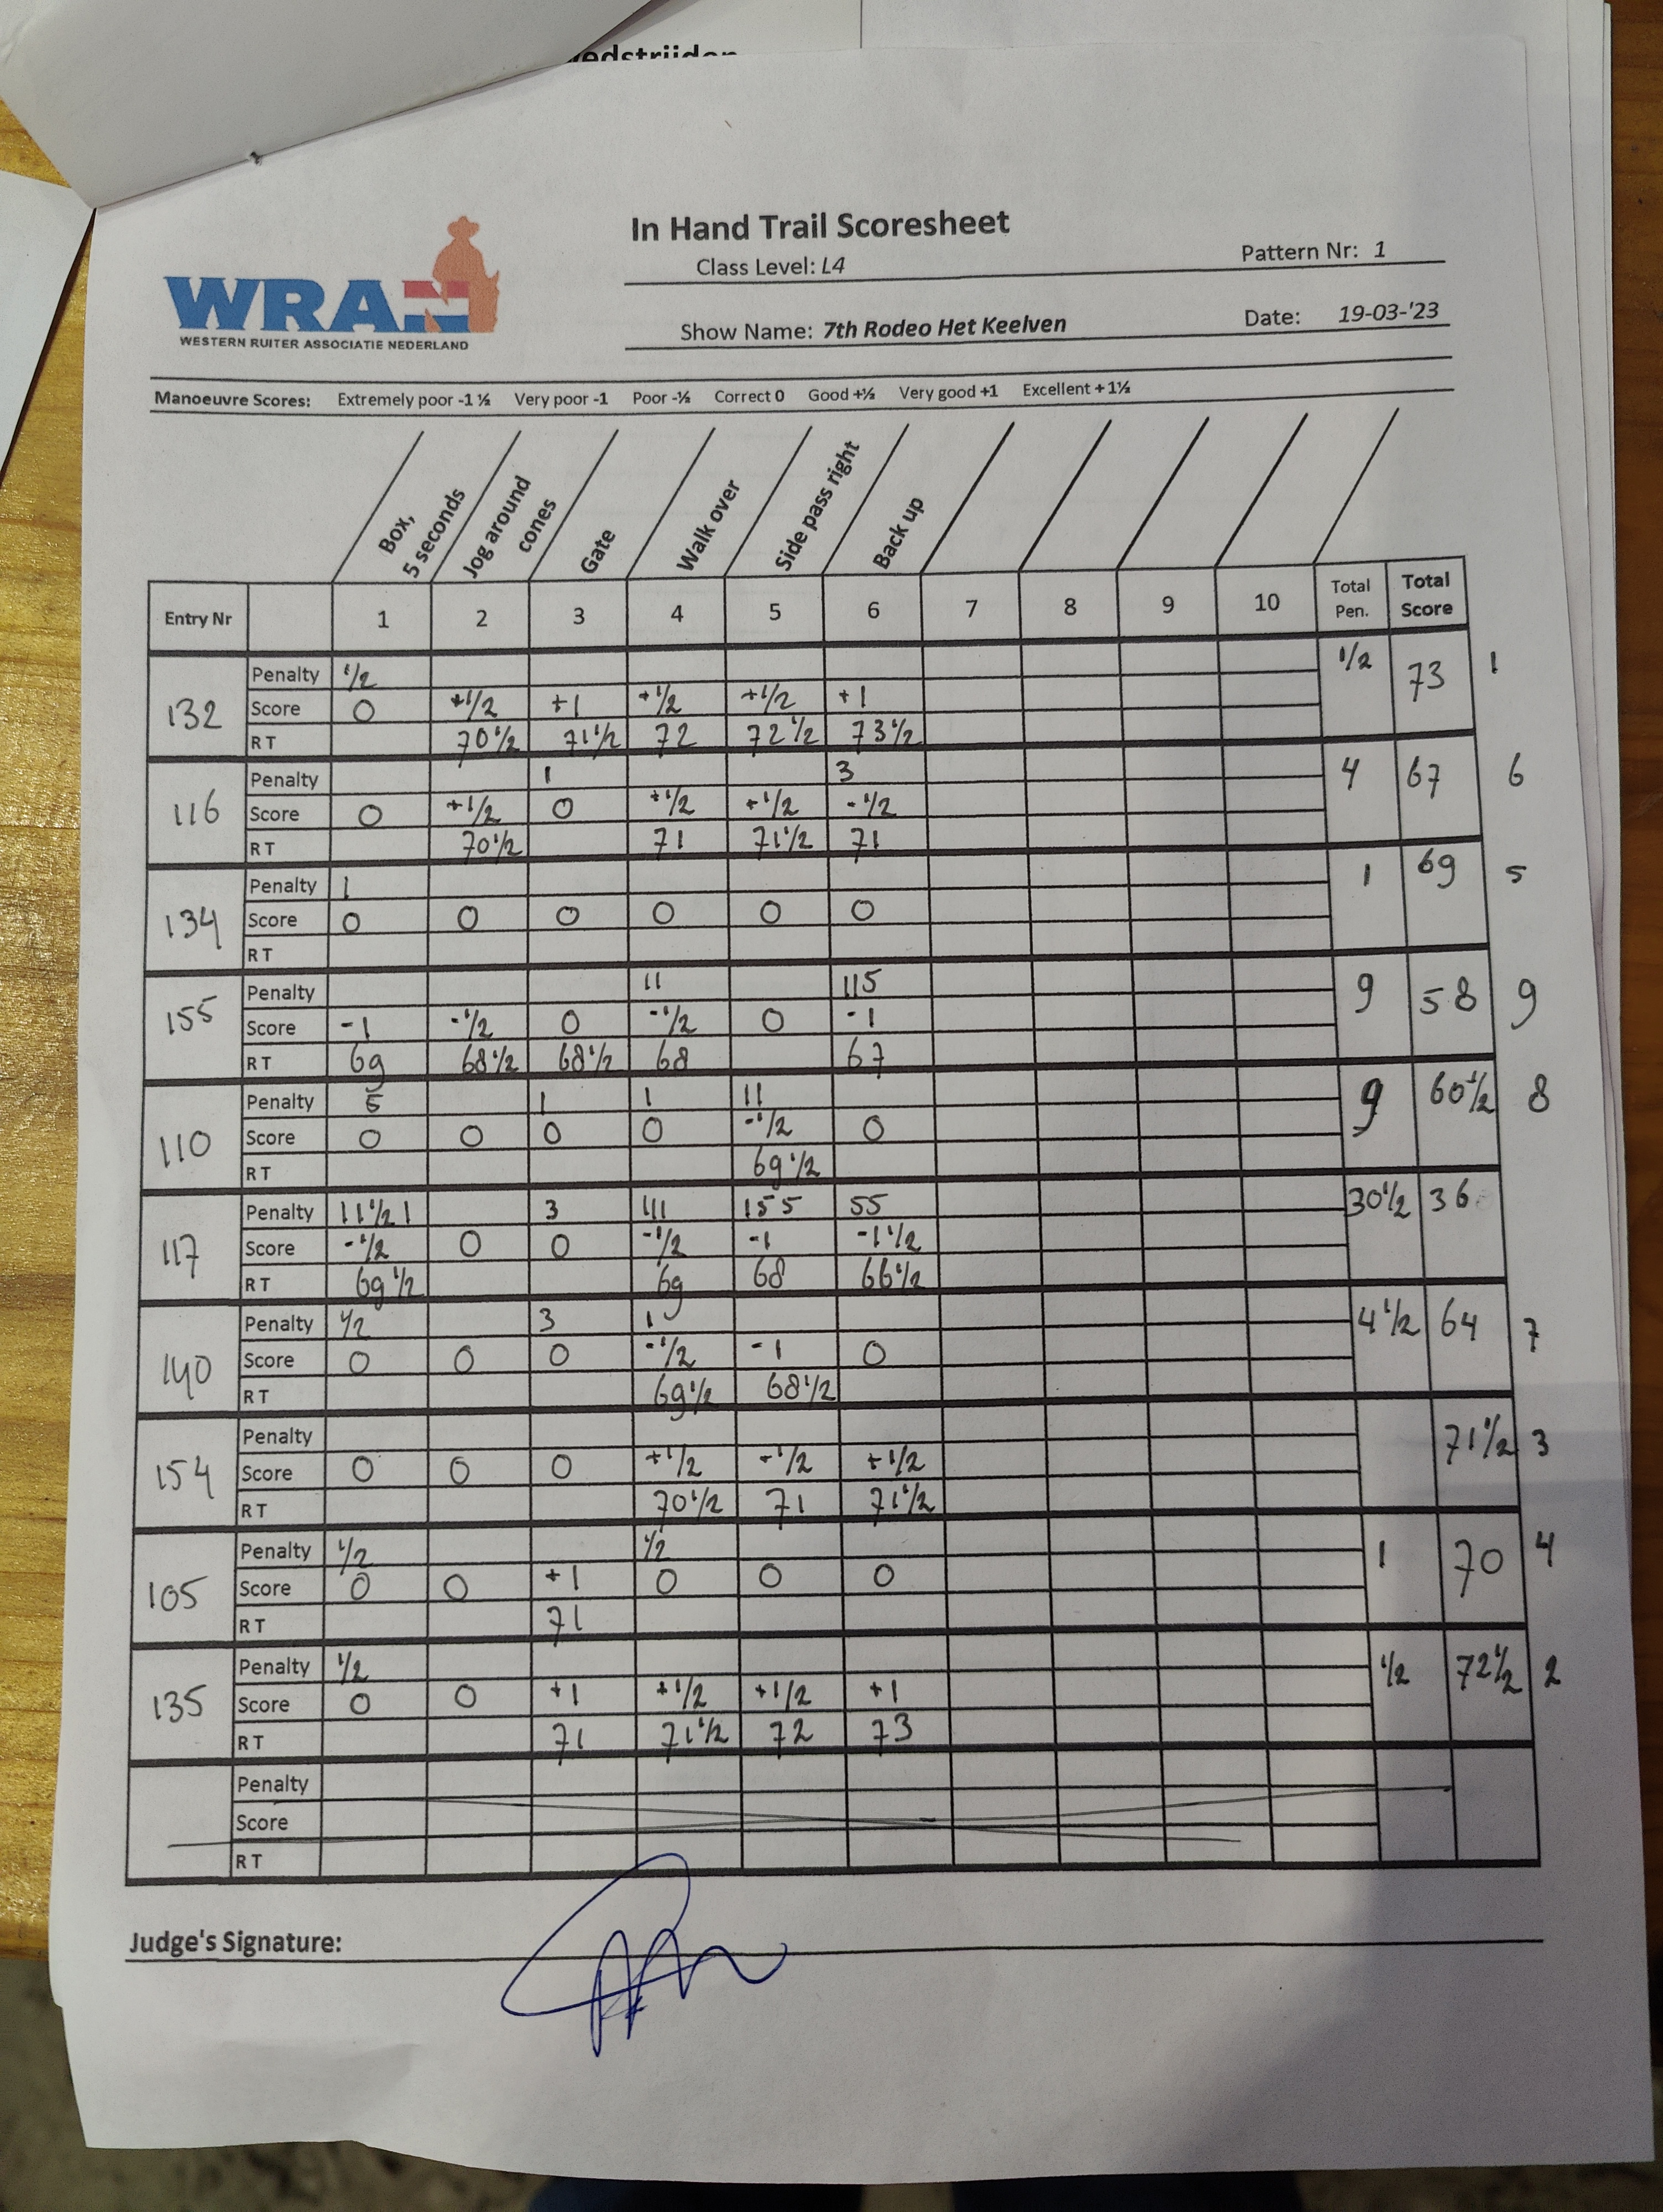 edstrijden
WRAN
WESTERN RUITER ASSOCIATIE NEDERLAND
In Hand Trail Scoresheet
Class Level: L4
Pattern Nr: 1
Show Name: 7th Rodeo Het Keelven
Date: 19-03-'23
Manoeuvre Scores: Extremely poor -1 ½ Very poor -1 Poor -½ Correct 0 Good +½ Very good +1 Excellent + 1½
Box,
5 seconds
Jog around
cones
Gate
Walk over
Side pass right
Back up
Entry Nr 1 2 3 4 5 6 7 8 9 10 Total Pen. Total Score
132
Penalty 1/2 1/2 73 1
Score 0 +1/2 +1 +1/2 +1/2 +1
RT 70 1/2 71 1/2 72 72 1/2 73 1/2
116
Penalty 1 3 4 67 6
Score 0 +1/2 0 +1/2 +1/2 -1/2
RT 70 1/2 71 71 1/2 71
134
Penalty 1 1 69 5
Score 0 0 0 0 0 0
RT
155
Penalty 11 115 9 58 9
Score -1 -1/2 0 -1/2 0 -1
RT 69 68 1/2 68 1/2 68 67
110
Penalty 5 1 1 11 9 60 1/2 8
Score 0 0 0 0 -1/2 0
RT 69 1/2
117
Penalty 11 1/2 1 3 111 155 55 30 1/2 36
Score -1/2 0 0 -1/2 -1 -1 1/2
RT 69 1/2 69 68 66 1/2
140
Penalty 1/2 3 1 4 1/2 64 7
Score 0 0 0 -1/2 -1 0
RT 69 1/2 68 1/2
154
Penalty 71 1/2 3
Score 0 0 0 +1/2 +1/2 +1/2
RT 70 1/2 71 71 1/2
105
Penalty 1/2 1/2 1 70 4
Score 0 0 +1 0 0 0
RT 71
135
Penalty 1/2 1/2 72 1/2 2
Score 0 0 +1 +1/2 +1/2 +1
RT 71 71 1/2 72 73
Penalty
Score
RT
Judge's Signature: